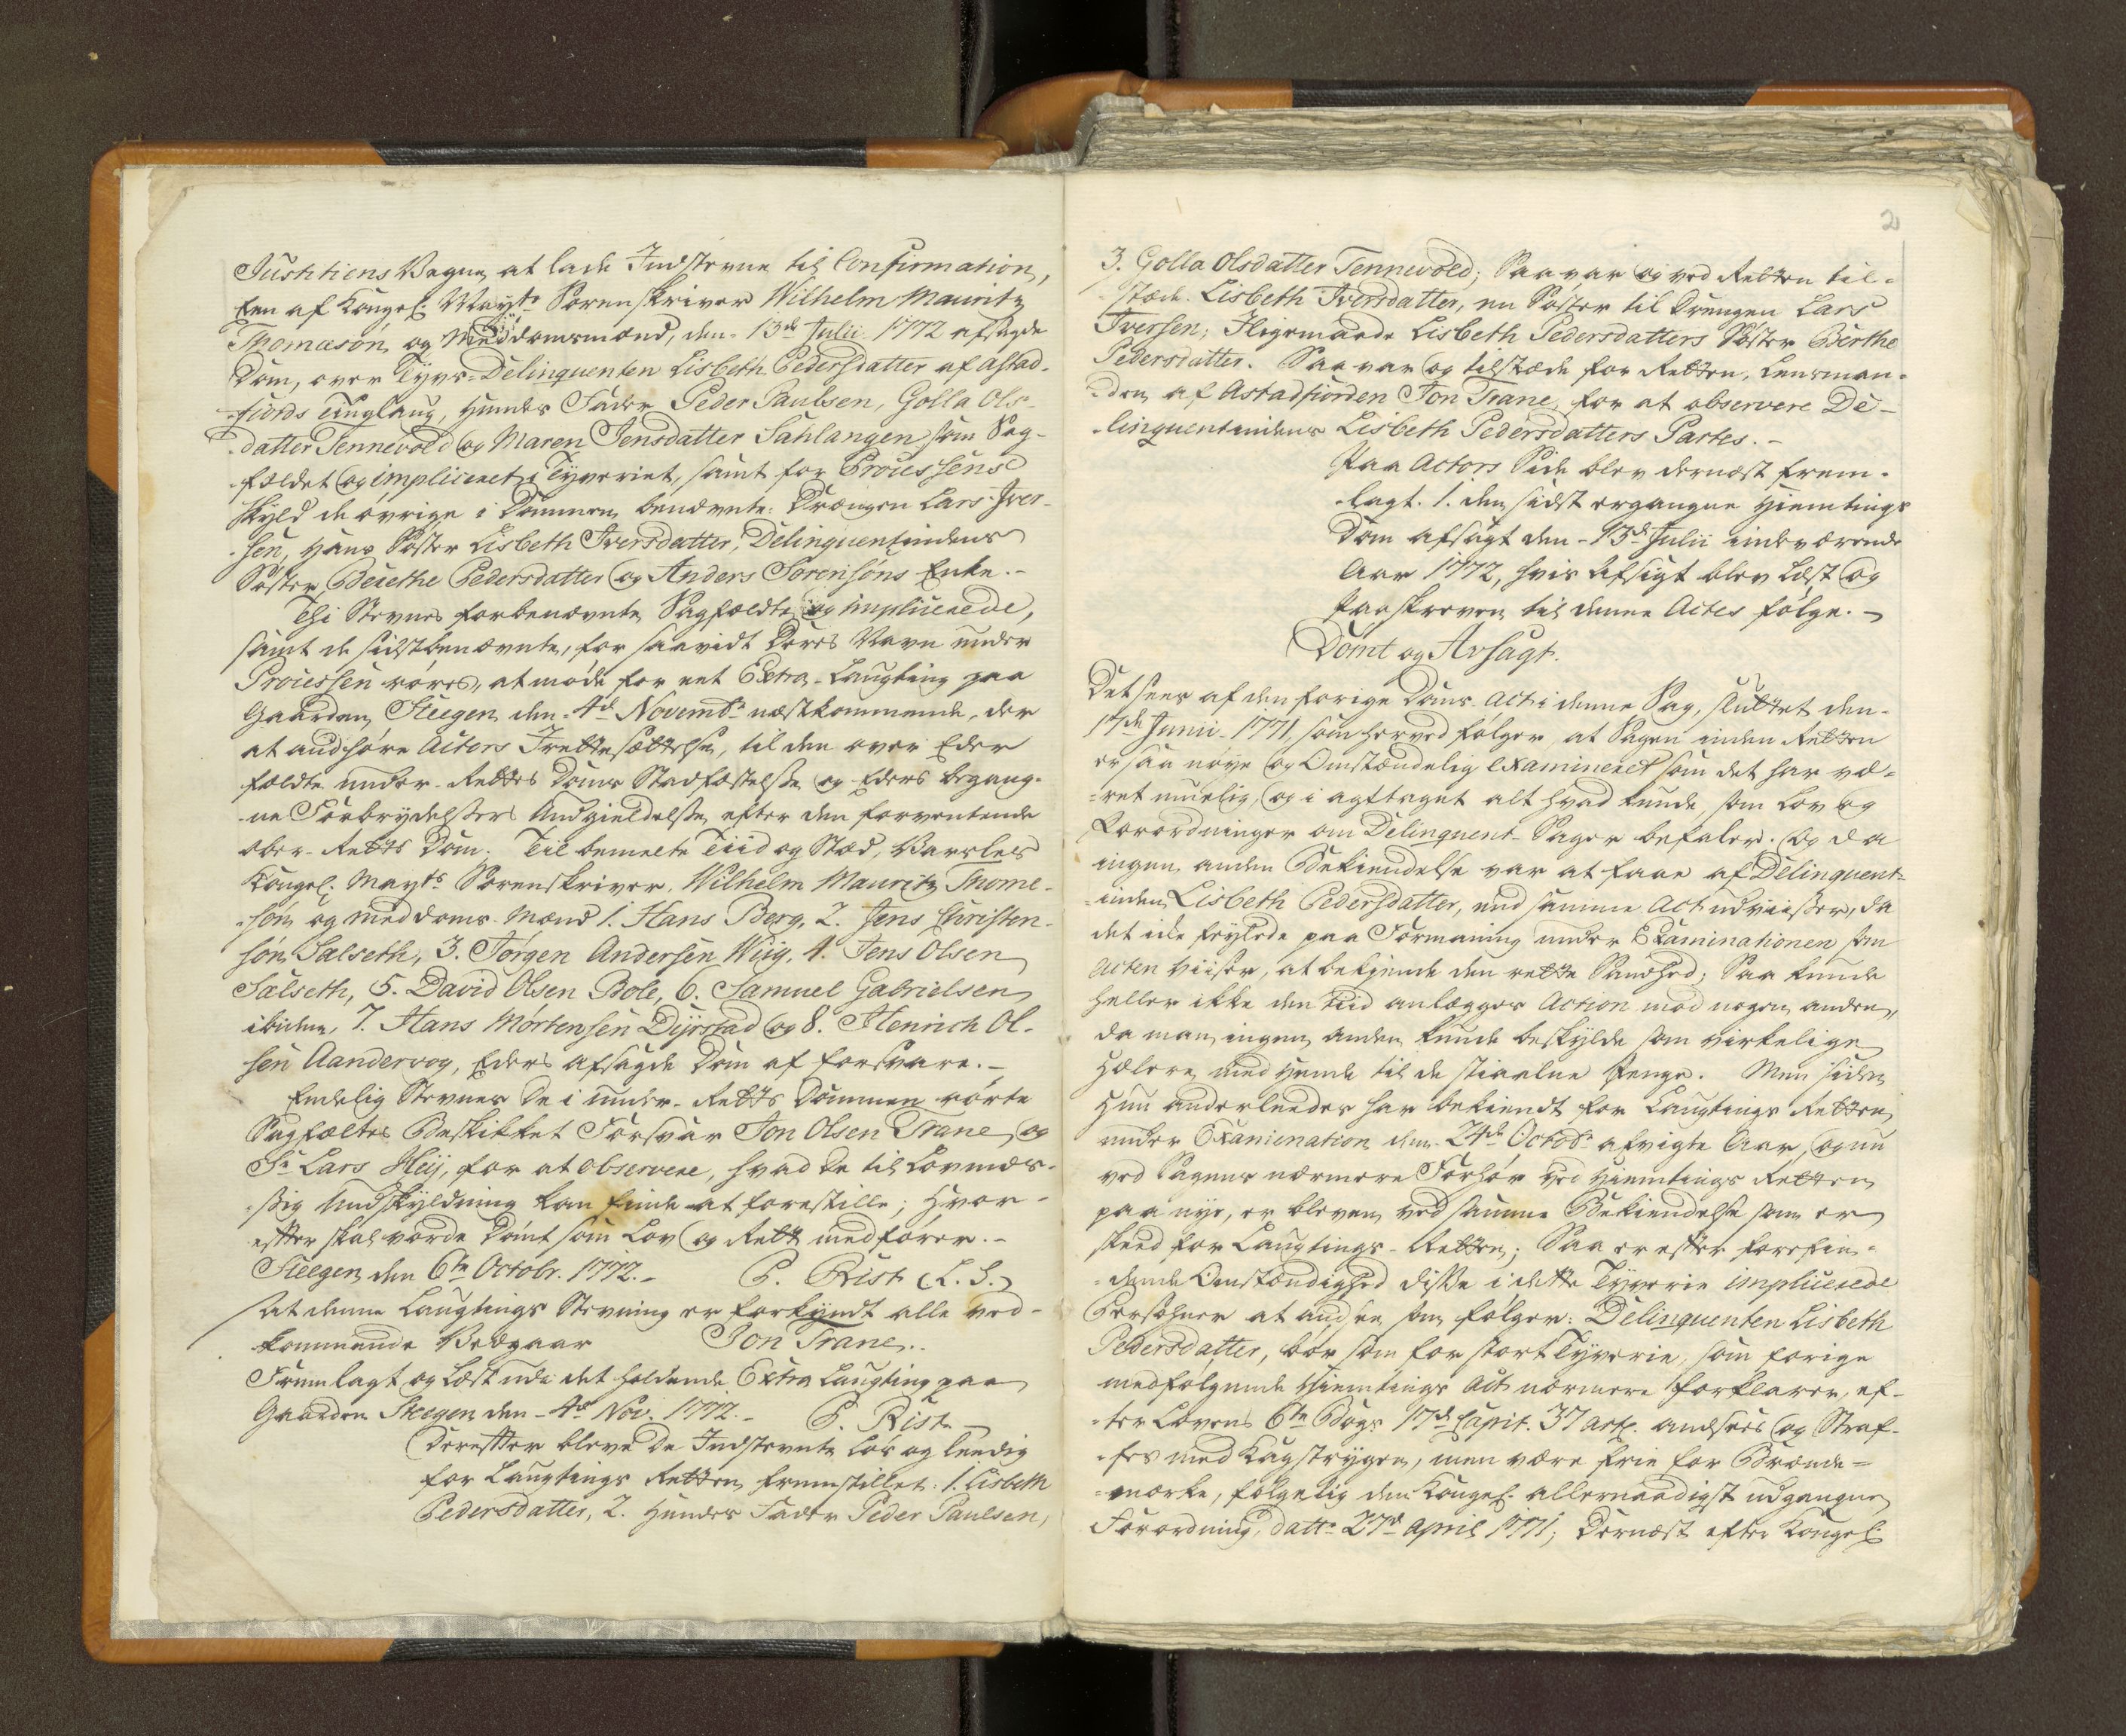 Justitiens Vegne at lade Indstevne til Confirmation,
Een af Kongel: Mayts Sorenskriver Wilhelm Mauritz
Thomasøn og Meddomsmænd, den 13de Julii 1772 afsagde
Dom, over Tyvs-Delinquenten Lisbeth Pedersdatter af Astad-
-fiords Tinglaug, hendes Fader Peder Paulsen, Golla Ols-
-datter Tennevold og Maren Jensdatter Sahlangen som Sag-
fældet og impliceret i Tyveriet, samt for Processens
skyld de øvrige i Dommen benævnte: Drængen Lars Iver-
-sen, hans Søster Lisbeth Iversdatter, Delinquentindens
Søster Berethe Pedersdatter og Anders Sørensøns Enke.-
Thi Stevnes forbenævnte Sagfældte og implicerede,
samt de sidstbenævnte, for saavidt deres Navn under
Processen røres, at møde for eet Extra-Laugting paa
Gaarden Steegen den 4de Novembr næstkommende, der
at andhøre Actors Irettesættelse, til den over Eder
fældte under-Rettes Doms Stadfæstelse og Eders begang-
-ne Forbrydelsers Undgieldelse efter den forventende
ober-Retts Dom. Til bemelte Tiid og Stæd, Varsles
Kongel: Mayts Sorenskriver, Wilhelm Mauritz Thome-
-søn og meddoms-Mænd 1. Hans Berg, 2. Jens Christen-
søn Salseth, 3. Jørgen Andersen Wiig, 4. Jens Olsen
Salseth, 5. David Olsen Bole, 6. Samuel Gabrielsen
ibidem, 7. Hans Mortensen Dyrstad og 8. Henrich Ol-
sen Aandervog, Eders afsagde Dom at forsvare.-
Endelig Stevnes de i under-Retts Dommen rørte
Sagfæltes Beskikket Forsvar Jon Olsen Trane, og
Sr Lars Heij, for at observere, hvad de til Lovmæs-
-sig Undskyldning kan finde at forestille; Hvor-
effter skal vorde Dømt som Lov og Rett medfører.-
Steegen den 6te Octobr. 1772.- P. Rist (L.S.)
At denne Laugtings Stevning er forkyndt alle ved-
kommende Vedgaar Jon Trane..
Fremlagt og læst udi det holdende Extra Laugting paa
Gaarden Steegen den 4de Nov. 1772.- P. Rist
Dereffter bleve de Indstevnte løs og leedig
for Laugtings Retten fremstillet: 1. Lisbeth
Pedersdatter, 2. hendes Fader Peder Paulsen,
2
3. Golla Olsdatter Tennevold; Saa var og ved Retten til-
stæde Lisbeth Iversdatter, en Søster til Drengen Lars
Iversen; Iligemaade Lisbeth Pedersdatters Søster Berthe
Pedersdatter. Saa var og tilstæde for Retten, Lensman-
-den af Astadfiorden Jon Trane, for at observere De-
-linquentindens Lisbeth Pedersdatters Partes.-
Paa Actors Side blev dernæst frem-
-lagt. 1. den sidst ergangne Hiemtings
Dom afsagt den 13de Julii indeværende
Aar 1772, hvis Afsigt blev læst og
Paaskreven til denne Actes følge.-
Dømt og Avsagt.
Det sees af den forige Doms Act i denne Sag, sluttet den
17de Junii 1771, som herved følger, at Sagen inden Retten
er saa nøye og Omstændelig examineret som det har væ-
-ret muelig, og i agttaget alt hvad kunde som Lov og
Forordninger om Delinquent-Sager befaler. Og da
ingen anden Bekiendelse var at faae af Delinquent-
-inden Lisbeth Pedersdatter, end samme Act udviiser, da
det icke feylede paa Formaning under Examinationen som
Acten viiser, at bekiende den rette Sandhed; Saa kunde
heller ikke den tiid anlægges Action mod nogen anden,
da man ingen anden kunde beskylde som virkelige
Hælere med hende til de stiaalne Penge. Men siden
hun anderleedes har bekiendt for Laugtings Retten
under Examination den 24de Octobr afvigte Aar, og nu
ved Sagens nærmere Forhør ved Hiemtings Retten
paa nye, er bleven ved samme Bekiendelse som er
skeed for Laugtings-Retten; Saa er effter forefin-
-dende Omstændighed disse i dette Tyverie implicerede
Persohner at andsee som følger: Delinquenten Lisbeth
Pedersdatter, bør som for stort Tyverie, som forige
medfølgende Hiemtings Act nærmere forklarer, ef-
-ter Lovens 6te Bogs 17de Capit. 37 Art. andsees og Straf-
-fes med Kagstrygen, men være frie for Brænde-
-mærke, følgelig den Kongel: allernaadigst udgangne
Forordning, datr 27de April 1771; Dernæst efter Kongel: